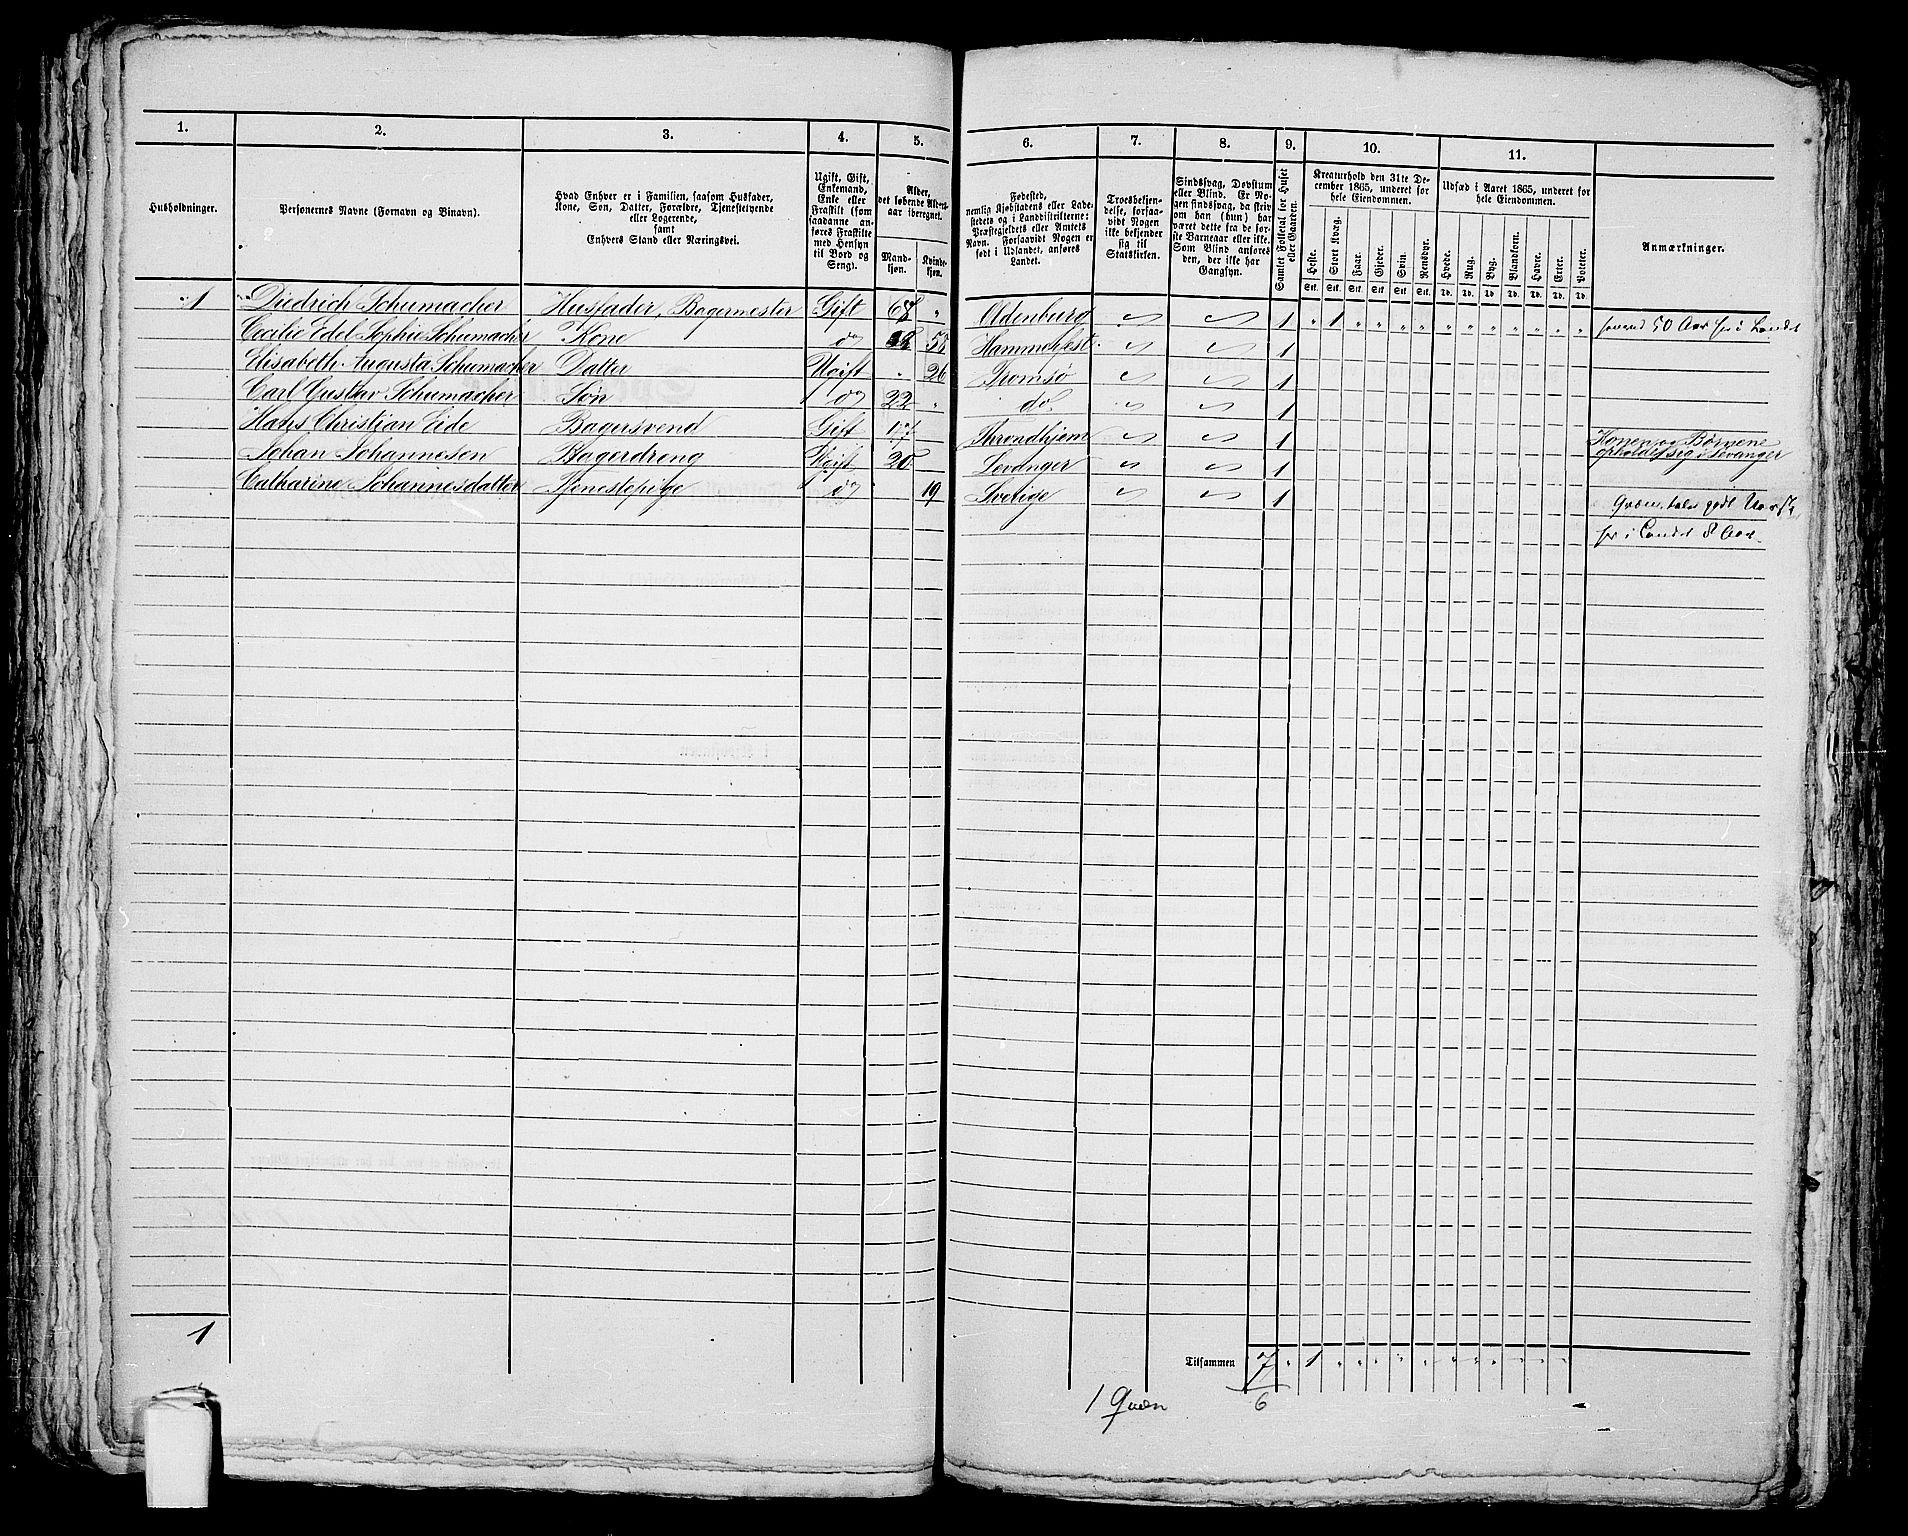 1. 2. 3. 4. 5. 6. 7. 8. 9. 10. 11.
Husholdninger.
Personernes Navne (Fornavn og Binavn).
Hvad Enhver er i Familien, saasom Husfader,
Kone, Søn, Datter, Forældre, Tjenestetyende
eller Logerende,
samt
Enhvers Stand eller Næringsvei.
Ugift, Gift,
Enkemand,
Enke eller
Fraskilt (som
saadanne an-
føres Fraskilte
med Hensyn
til Bord og
Seng).
Alder,
det løbende Alders-
aar iberegnet.
Mand-
kjøn.
Kvinde-
kjøn.
Fødested,
nemlig Kjøbstadens eller Lade-
stedets og i Landdistrikterne:
Præstegjeldets eller Amtets
Navn. Forsaavidt Nogen er
født i Udlandet, anføres
Landet.
Troesbekjen-
delse, forsaa-
vidt Nogen
ikke bekjender
sig til
Statskirken.
Sindssvag, Døvstum
eller Blind. Er No-
gen sindssvag, da skriv
om han (hun) har
været dette fra de før-
ste Barneaar eller ikke.
Som Blind anføres
den, der ikke har
Gangsyn.
Samlet Folketal for Huset
eller Gaarden.
Kreaturhold den 31te De-
cember 1865, underet for
hele Eiendommen.
Heste. Stort Kvæg. Faar. Gjeder. Svin. Rensdyr.
Stk. Stk. Stk. Stk. Stk. Stk.
Udsæd i Aaret 1865, underet for
hele Eiendommen.
Hvede. Rug. Byg. Blandkorn. Havre. Erter. Poteter.
Td. Td. Td. Td. Td. Td. Td.
Anmærkninger.
1 Diedrich Schumacher Husfader, Bagermester Gift 68 " Oldenburg 1 " 1 " " " " " " " " " " " 50 Aar her i Landet
Cecilie Edel Sophie Schumacher Kone do Hammerfest 1
Elisabeth Augusta Schumacher Datter Ugift " 26 Tromsø 1
Carl Gustav Schumacher Søn do 22 " do 1
Hans Christian Eide Bagersvend Gift Throndhjem 1 Konen og Børnene
Johan Johannesen Bagerdreng Ugift 20 Levanger 1 opholder sig i Levanger
Catharine Johannesdatter Tjenestepige do 19 Sverige 1 Qvæn, taler godt Norsk,
her i Landet 8 Aar
1
Tilsammen 7 " 1 " " " " " " " " " "
1 Qvæn 6